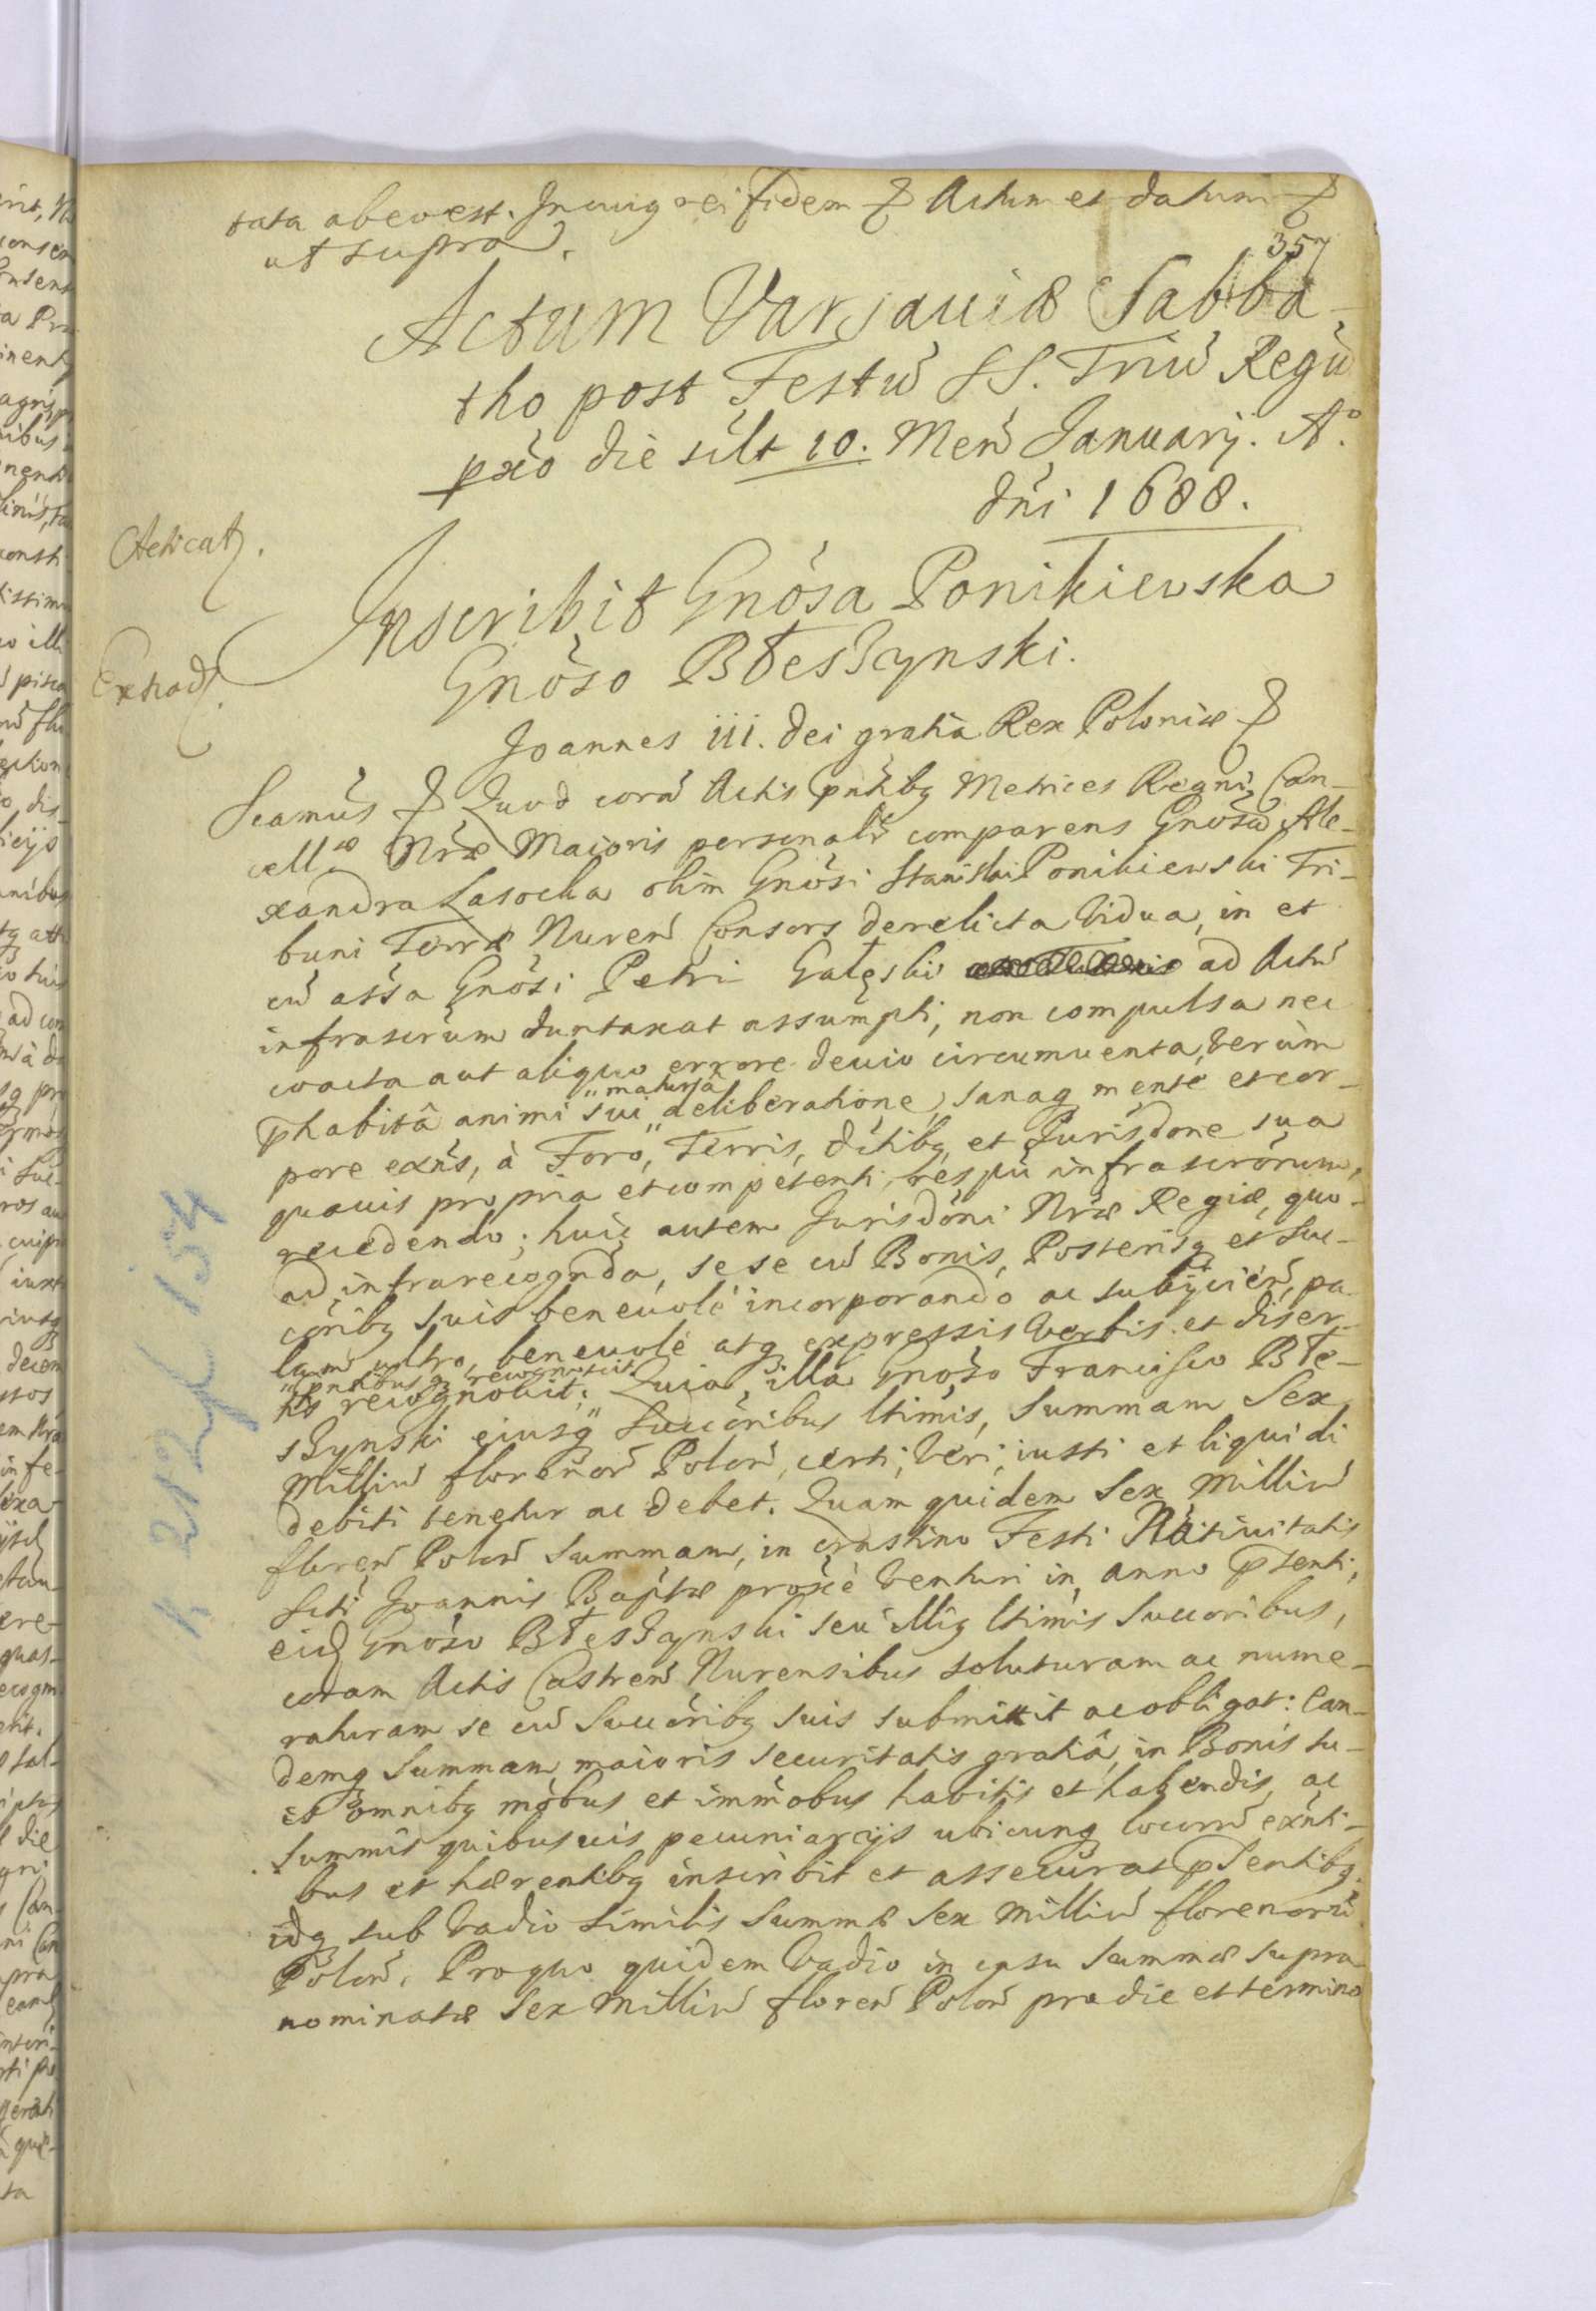 tata abevest. In cuig rei fidem & Actum et datum &
ut supra.
357
Actum Varsaviæ Sabba-
tho post Festū SS. Triū Regū
pxo die silt 10. Men Januarij. Ao
dni 1688.
Acticatz.
Inscribit Gnosa Ponikiewska
Gnoso Błeszynski.
Extrad.
Joannes iii. Dei gratia Rex Poloniæ &
Scamus & Quod corā Actis pntibg Metrices Regni Can-
cellæ Nræ Maioris personalr comparens Gnosa Ale-
xandra Lasocka olim Gnosi Stanislai Ponikiewski Tri-
buni Terræ Nuren Consors derelicta Vidua, in et
cū assa Gnosi Petri Gałęski ad Actū
infrascrum duntaxat assumpti, non compulsa nec
coacta aut aliquo errore devio circumventa, verùm
phabitâ animi sui "maturâ" deliberatione, sanag mente et cor-
pore exns, à Foro, Terris, dttibg, et Jurisdone sua
quavis propria et competenti, respū infrascrorum,
recedendo; huic autem Jurisdoni Nræ Regiæ, quo
ad infrarecognda, sese cū Bonis, Posterisq et Suc-
coribg suis benevolè incorporando ac subijcien, pa-
lam ultro, benevolè atg expressis verbis et diser-
tis recognovit; "pntibusq recognoscit" Quia, illa Gnoso Francisco Błe-
szynski eiusq Succoribus ltimis, Summam Sex
Milliū florenor Polon, certi, veri, iusti et liquidi
debiti tenetur ac debet. Quam quidem Sex Milliū
floren Polon Summam, in crastino Festi Nativitatis
Scti Joannis Baptæ proxe venturi in anno psenti,
eid Gnoso Błeszynski seu illig ltimis Succoribus,
coram Actis Castren Nurensibus soluturam ac nume-
raturam se cū Succoribg suis submittit ac obligat: Ean-
demq Summam maioris securitatis gratiâ, in Bonis su-
is omnibg mobus et immobus habitis et habendis, ac
Summis quibusvis pecuniarijs ubicunq locorū exnti-
bus et hærentibg inscribit et assecurat psentibg.
idq sub vadio similis Summæ Sex Milliū florenorū
Polon. Pro quo quidem Vadio in casu Summæ supra
nominatæ Sex Milliū floren Polon pro die et termino